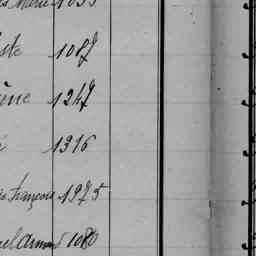 Marie 1035
ste 1087
ène 1247
1316
François 1975
el Armand 1080